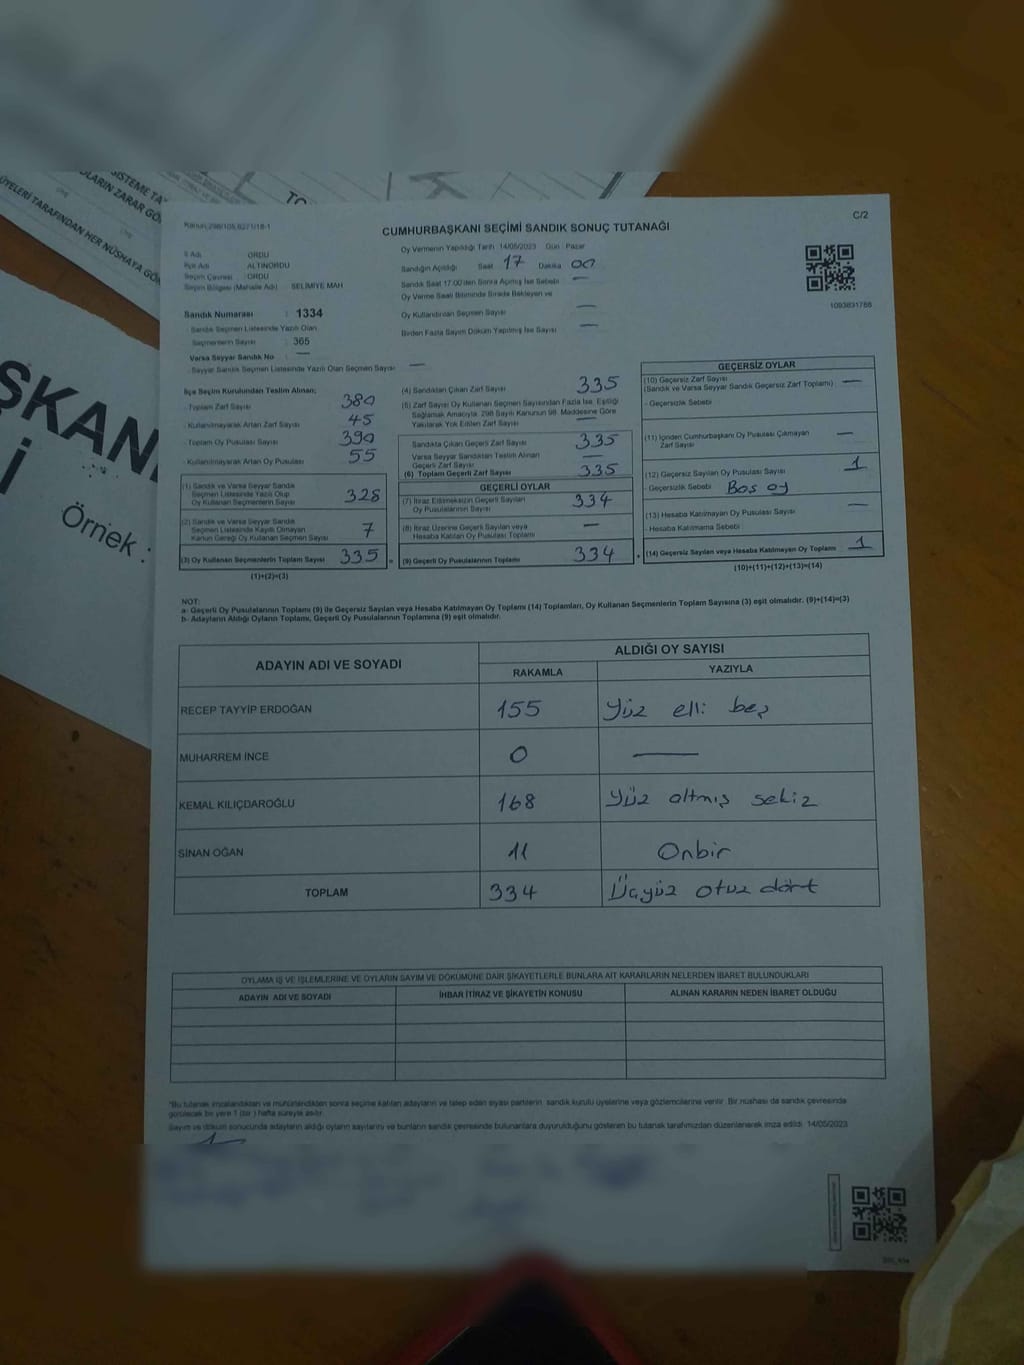 SİSTEME
ZARAR
ÜYELERİ TARAFINDAN HER NÜSHAYA
ŞKANI
Örnek :
C/2
CUMHURBAŞKANI SEÇİMİ SANDIK SONUÇ TUTANAĞI
İl Adı : ORDU
İlçe Adı : ALTINORDU
Seçim Çevresi : ORDU
Seçim Bölgesi (Mahalle Adı) : SELİMİYE MAH
Oy Vermenin Yapıldığı Tarih 14/05/2023 Gün Pazar
Sandığın Açıldığı Saat 17 Dakika 00
Sandık Saat 17:00'den Sonra Açılmış İse Sebebi —
Oy Verme Saati Bitiminde Sırada Bekleyen ve
Oy Kullandırılan Seçmen Sayısı —
Birden Fazla Sayım Döküm Yapılmış İse Sayısı —
1093831788
Sandık Numarası : 1334
Sandık Seçmen Listesinde Yazılı Olan
Seçmenlerin Sayısı : 365
Varsa Seyyar Sandık No : —
Seyyar Sandık Seçmen Listesinde Yazılı Olan Seçmen Sayısı : —
İlçe Seçim Kurulundan Teslim Alınan;
- Toplam Zarf Sayısı 380
- Kullanılmayarak Artan Zarf Sayısı 45
- Toplam Oy Pusulası Sayısı 390
- Kullanılmayarak Artan Oy Pusulası 55
(1) Sandık ve Varsa Seyyar Sandık
Seçmen Listesinde Yazılı Olup
Oy Kullanan Seçmenlerin Sayısı 328
(2) Sandık ve Varsa Seyyar Sandık
Seçmen Listesinde Kayıtlı Olmayan
Kanun Gereği Oy Kullanan Seçmen Sayısı 7
(3) Oy Kullanan Seçmenlerin Toplam Sayısı 335
(1)+(2)=(3)
(4) Sandıktan Çıkan Zarf Sayısı 335
(5) Zarf Sayısı Oy Kullanan Seçmen Sayısından Fazla İse, Eşitliği
Sağlamak Amacıyla, 298 Sayılı Kanunun 98. Maddesine Göre
Yakılarak Yok Edilen Zarf Sayısı —
Sandıkta Çıkan Geçerli Zarf Sayısı 335
Varsa Seyyar Sandıktan Teslim Alınan
Geçerli Zarf Sayısı —
(6) Toplam Geçerli Zarf Sayısı 335
GEÇERLİ OYLAR
(7) İtiraz Edilmeksizin Geçerli Sayılan
Oy Pusulalarının Sayısı 334
(8) İtiraz Üzerine Geçerli Sayılan veya
Hesaba Katılan Oy Pusulası Toplamı —
(9) Geçerli Oy Pusulalarının Toplamı 334
GEÇERSİZ OYLAR
(10) Geçersiz Zarf Sayısı
(Sandık ve Varsa Seyyar Sandık Geçersiz Zarf Toplamı) : —
- Geçersizlik Sebebi :
(11) İçinden Cumhurbaşkanı Oy Pusulası Çıkmayan
Zarf Sayısı —
(12) Geçersiz Sayılan Oy Pusulası Sayısı 1
- Geçersizlik Sebebi : Boş oy
(13) Hesaba Katılmayan Oy Pusulası Sayısı —
- Hesaba Katılmama Sebebi :
(14) Geçersiz Sayılan veya Hesaba Katılmayan Oy Toplamı 1
(10)+(11)+(12)+(13)=(14)
NOT:
a- Geçerli Oy Pusulalarının Toplamı (9) ile Geçersiz Sayılan veya Hesaba Katılmayan Oy Toplamı (14) Toplamları, Oy Kullanan Seçmenlerin Toplam Sayısına (3) eşit olmalıdır. (9)+(14)=(3)
b- Adayların Aldığı Oyların Toplamı, Geçerli Oy Pusulalarının Toplamına (9) eşit olmalıdır.
ADAYIN ADI VE SOYADI ALDIĞI OY SAYISI
RAKAMLA YAZIYLA
RECEP TAYYİP ERDOĞAN 155 Yüz elli beş
MUHARREM İNCE 0 —
KEMAL KILIÇDAROĞLU 168 Yüz altmış sekiz
SİNAN OĞAN 11 Onbir
TOPLAM 334 Üçyüz otuz dört
OYLAMA İŞ VE İŞLEMLERİNE VE OYLARIN SAYIM VE DÖKÜMÜNE DAİR ŞİKAYETLERLE BUNLARA AİT KARARLARIN NELERDEN İBARET BULUNDUKLARI
ADAYIN ADI VE SOYADI İHBAR İTİRAZ VE ŞİKAYETİN KONUSU ALINAN KARARIN NEDEN İBARET OLDUĞU
*Bu tutanak imzalandıktan ve mühürlendikten sonra seçime katılan adayların ve talep eden siyasi partilerin, sandık kurulu üyelerine veya gözlemcilerine verilir. Bir nüshası da sandık çevresinde
görülecek bir yere 1 (bir) hafta süreyle asılır.
Sayım ve döküm sonucunda adayların aldığı oyların sayılarını ve bunların sandık çevresinde bulunanlara duyurulduğunu gösteren bu tutanak tarafımızdan düzenlenerek imza edildi. 14/05/2023